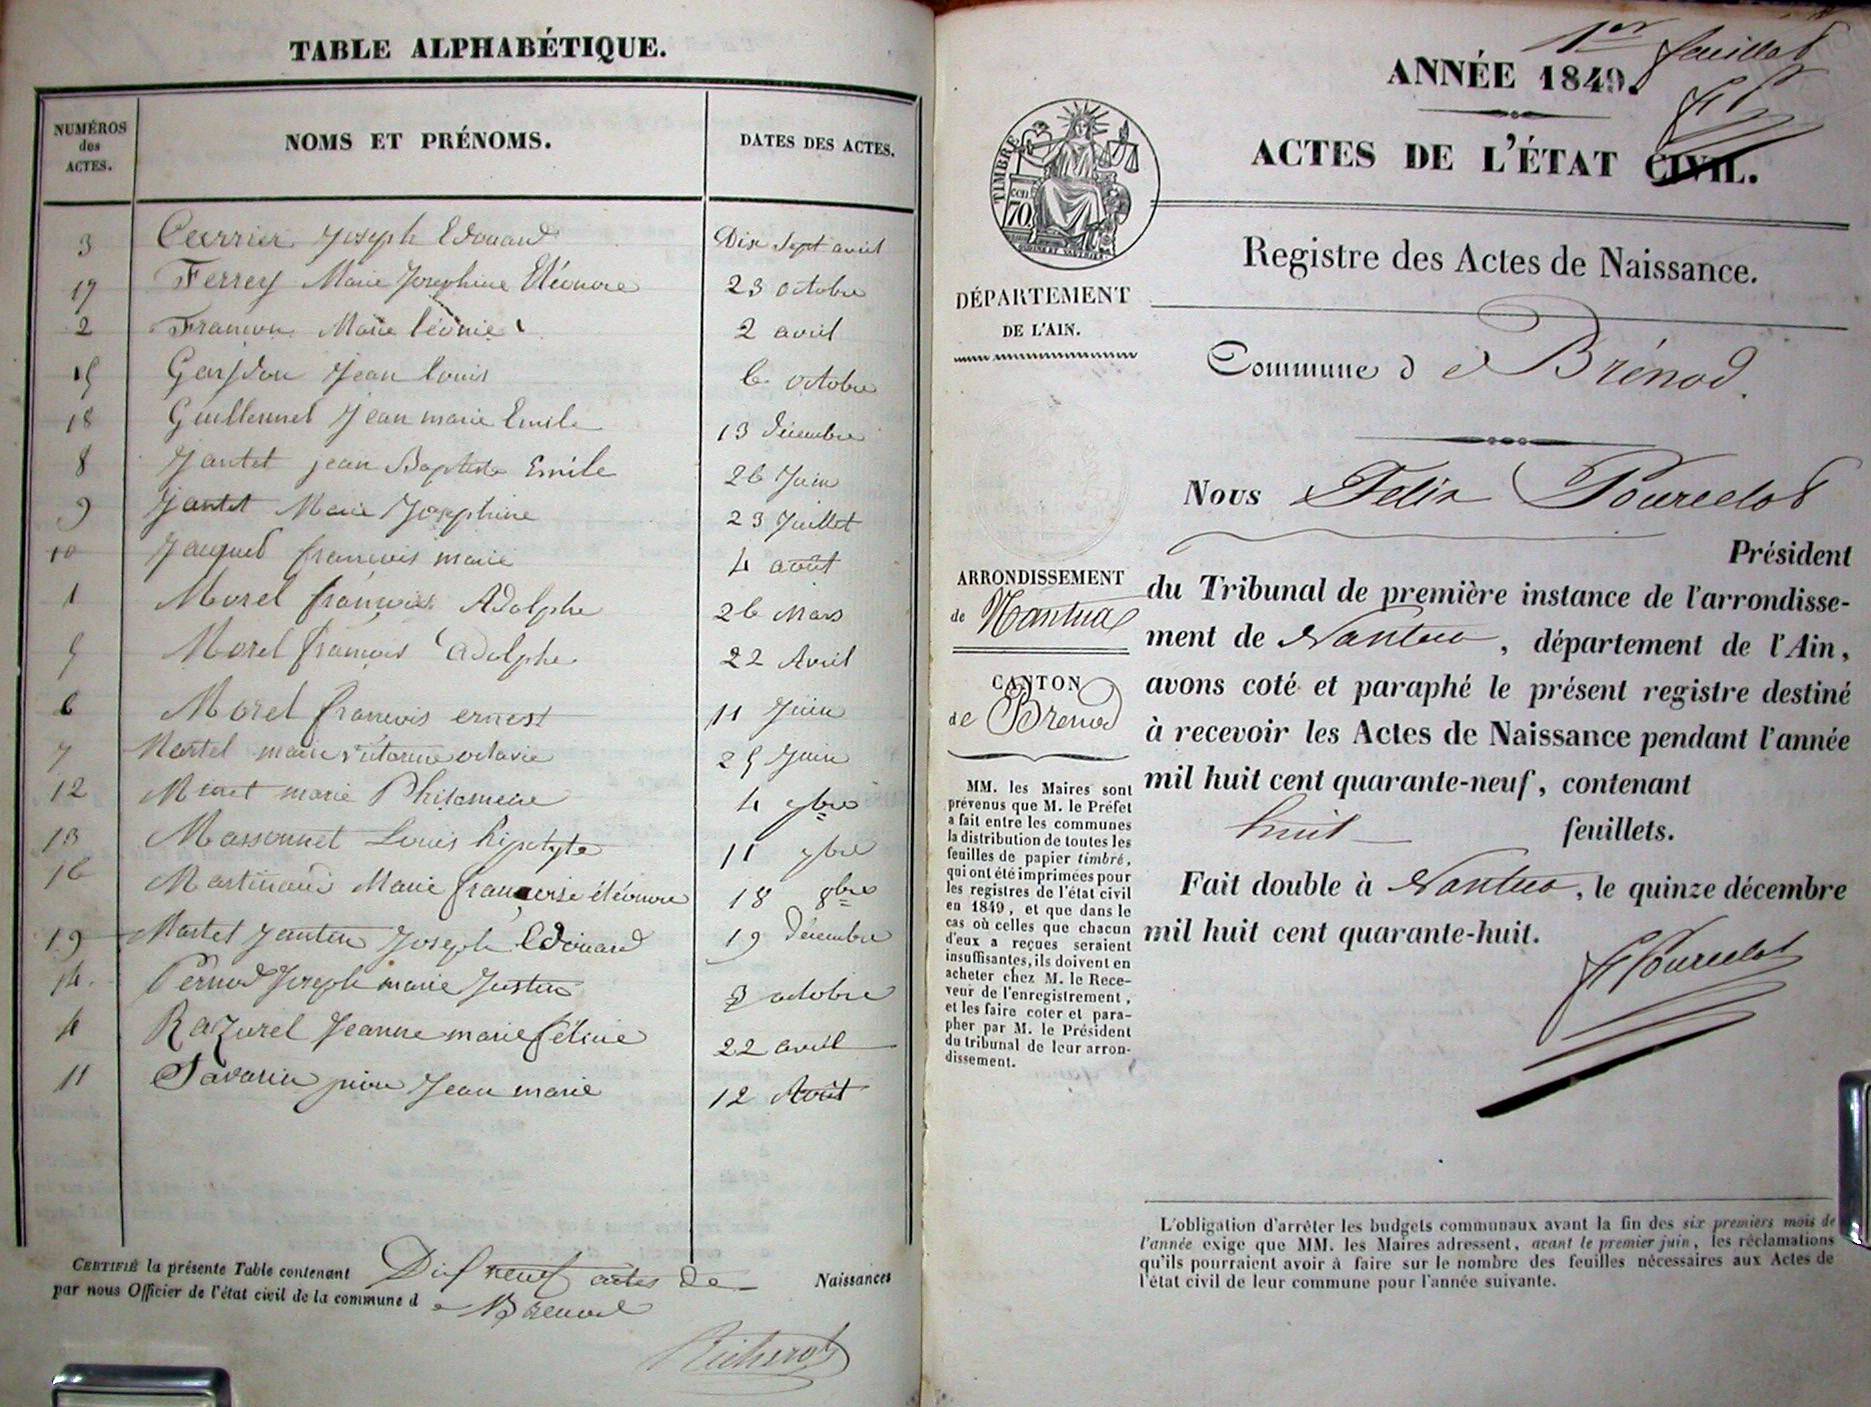 TABLE ALPHABÉTIQUE.
NUMÉROS des ACTES.
NOMS ET PRÉNOMS.
DATES DES ACTES.
3 Joseph Edouard Dix sept avril
17 Ferrey Marie Josephine Eléonore 23 octobre
2 Francon Marie léonie 2 avril
15 Jean louis 6 octobre
18 Guillermet Jean marie Emile 13 décembre
8 Jantet jean Baptiste Emile 26 Juin
9 Jantet Marie Josephine 23 Juillet
10 Jacquet francois marie 4 août
1 Morel françois Adolphe 26 Mars
5 Morel françois adolphe 22 Avril
6 Morel francois ernest 11 Juin
7 Martel marie victorine octavie 25 Juin
12 marie Philomene 4 7bre
13 Massonnet Louis hipolyte 11 7bre
16 Martinand Marie françoise éléonore 18 8bre
19 Martel Jantin Joseph Edouard 19 décembre
14. Pernod Joseph marie Justin 3 octobre
4 Razurel Jeanne marie féline 22 avril
11 Savarin Jean marie 12 Août
CERTIFIÉ la présente Table contenant Dix neuf actes de Naissances
par nous Officier de l'état civil de la commune d e Brenod
1er feuillet
ANNÉE 1849.
ACTES DE L'ÉTAT CIVIL.
TIMBRE
70
Registre des Actes de Naissance.
DÉPARTEMENT
DE L'AIN.
Commune d e Brénod.
Nous Felix Pourcelot
Président
ARRONDISSEMENT
de Nantua
CANTON
de Brenod
du Tribunal de première instance de l'arrondisse-
ment de Nantua, département de l'Ain,
avons coté et paraphé le présent registre destiné
à recevoir les Actes de Naissance pendant l'année
mil huit cent quarante-neuf, contenant
huit feuillets.
Fait double à Nantua, le quinze décembre
mil huit cent quarante-huit.
F Pourcelot
MM. les Maires sont
prévenus que M. le Préfet
a fait entre les communes
la distribution de toutes les
feuilles de papier timbré,
qui ont été imprimées pour
les registres de l'état civil
en 1849, et que dans le
cas où celles que chacun
d'eux a reçues seraient
insuffisantes, ils doivent en
acheter chez M. le Rece-
veur de l'enregistrement,
et les faire coter et para-
pher par M. le Président
du tribunal de leur arron-
dissement.
L'obligation d'arrêter les budgets communaux avant la fin des six premiers mois de
l'année exige que MM. les Maires adressent, avant le premier juin, les réclamations
qu'ils pourraient avoir à faire sur le nombre des feuilles nécessaires aux Actes de
l'état civil de leur commune pour l'année suivante.